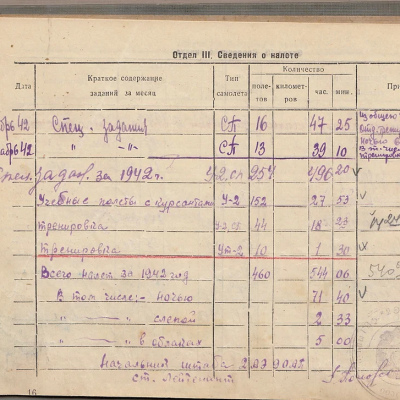 Отдел III. Сведения о налоте
Дата Краткое содержание заданий за месяц Тип самолета Количество При
полетов километров час. мин.
брь 42 Спец. задания СП 16 47 25 из общего
брь 42 " -"- СП 13 39 10
задан. за 1942 г. У-2, СП 257 496 20
Учебные полеты с курсантами У-2 152 27 53
тренировка У-2, СП 44 18 23
тренировка Ут-2 10 1 30
Всего налет за 1942 год 460 544 06
В том числе:- ночью 71 40
" — " — слепой 2 33
" — " — в облаках 5 00
Начальник штаба
ст. лейтенант
16